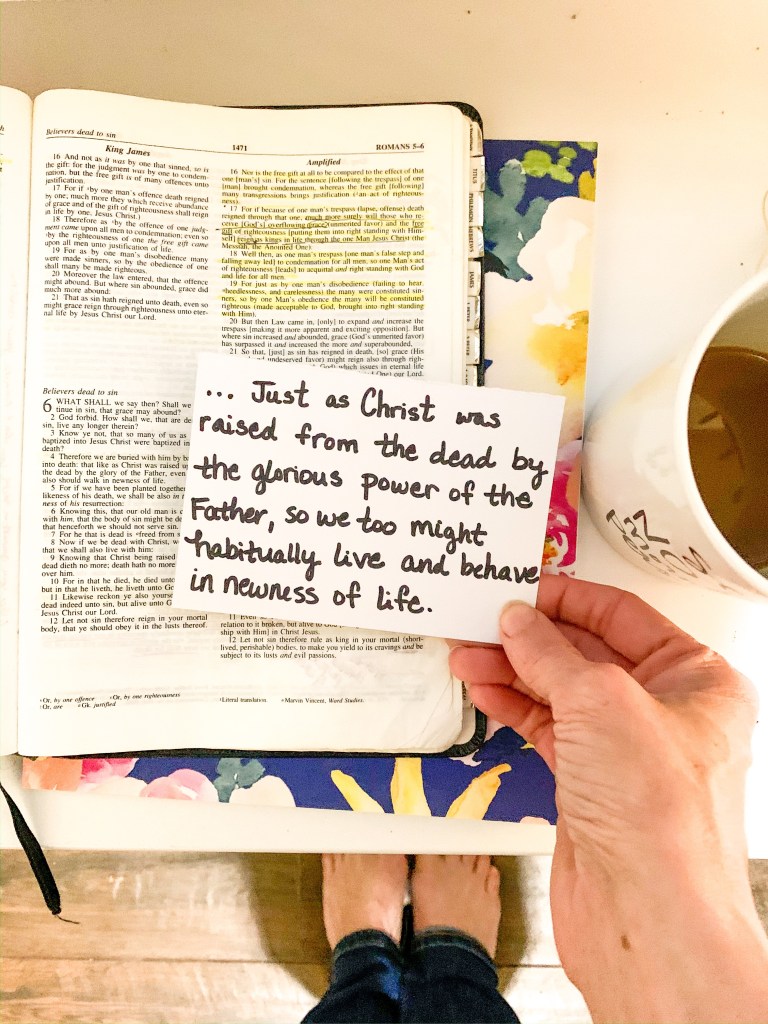 Believers dead to sin
King James
1471
ROMANS 5–6
16 And not as it was by one that sinned, so is
the gift: for the judgment was by one to condem-
nation, but the free gift is of many offences unto
justification.
17 For if by one man's offence death reigned
by one; much more they which receive abundance
of grace and of the gift of righteousness shall reign
in life by one, Jesus Christ.)
18 Therefore as by the offence of one judg-
ment came upon all men to condemnation; even so
by the righteousness of one the free gift came
upon all men unto justification of life.
19 For as by one man's disobedience many
were made sinners, so by the obedience of one
shall many be made righteous.
20 Moreover the law entered, that the offence
might abound. But where sin abounded, grace did
much more abound:
21 That as sin hath reigned unto death, even so
might grace reign through righteousness unto eter-
nal life by Jesus Christ our Lord.
Believers dead to sin
6 WHAT SHALL we say then? Shall we
tinue in sin, that grace may abound?
2 God forbid. How shall we, that are de
sin, live any longer therein?
3 Know ye not, that so many of us as
baptized into Jesus Christ were baptized in
death?
4 Therefore we are buried with him by b
into death: that like as Christ was raised u
the dead by the glory of the Father, even
also should walk in newness of life.
5 For if we have been planted together
likeness of his death, we shall be also in t
ness of his resurrection:
6 Knowing this, that our old man is c
with him, that the body of sin might be de
that henceforth we should not serve sin.
7 For he that is dead is freed from s
8 Now if we be dead with Christ, w
that we shall also live with him:
9 Knowing that Christ being raised
dead dieth no more; death hath no more
over him.
10 For in that he died, he died unto
but in that he liveth, he liveth unto G
11 Likewise reckon ye also yourse
dead indeed unto sin, but alive unto G
Jesus Christ our Lord.
12 Let not sin therefore reign in your mortal
body, that ye should obey it in the lusts thereof.
Amplified
16 Nor is the free gift at all to be compared to the effect of that
one [man's] sin. For the sentence [following the trespass] of one
[man] brought condemnation, whereas the free gift [following]
many transgressions brings justification (an act of righteous-
ness).
17 For if because of one man's trespass (lapse, offense) death
reigned through that one, much more surely will those who re-
ceive [God's] overflowing grace (unmerited favor) and the free
gift of righteousness [putting them into right standing with Him-
self] reign as kings in life through the one Man Jesus Christ (the
Messiah, the Anointed One).
18 Well then, as one man's trespass [one man's false step and
falling away led] to condemnation for all men, so one Man's act
of righteousness [leads] to acquittal and right standing with God
and life for all men.
19 For just as by one man's disobedience (failing to hear,
heedlessness, and carelessness) the many were constituted sin-
ners, so by one Man's obedience the many will be constituted
righteous (made acceptable to God, brought into right standing
with Him).
20 But then Law came in, [only] to expand and increase the
trespass [making it more apparent and exciting opposition]. But
where sin increased and abounded, grace (God's unmerited favor)
has surpassed it and increased the more and superabounded,
21 So that, [just] as sin has reigned in death, [so] grace (His
undeserved favor) might reign also through righ-
God) which issues in eternal
One) our Lord.
... Just as Christ was
raised from the dead by
the glorious power of the
Father, so we too might
habitually live and behave
in newness of life.
relation to it broken, but alive to
ship with Him] in Christ Jesus.
12 Let not sin therefore rule as king in your mortal (short-
lived, perishable) bodies, to make you yield to its cravings and be
subject to its lusts and evil passions.
Or, by one offence Or, by one righteousness
Or, are Gk. justified
Literal translation. Marvin Vincent, Word Studies.
TITUS
PHILEMON, HEBREWS
JAMES